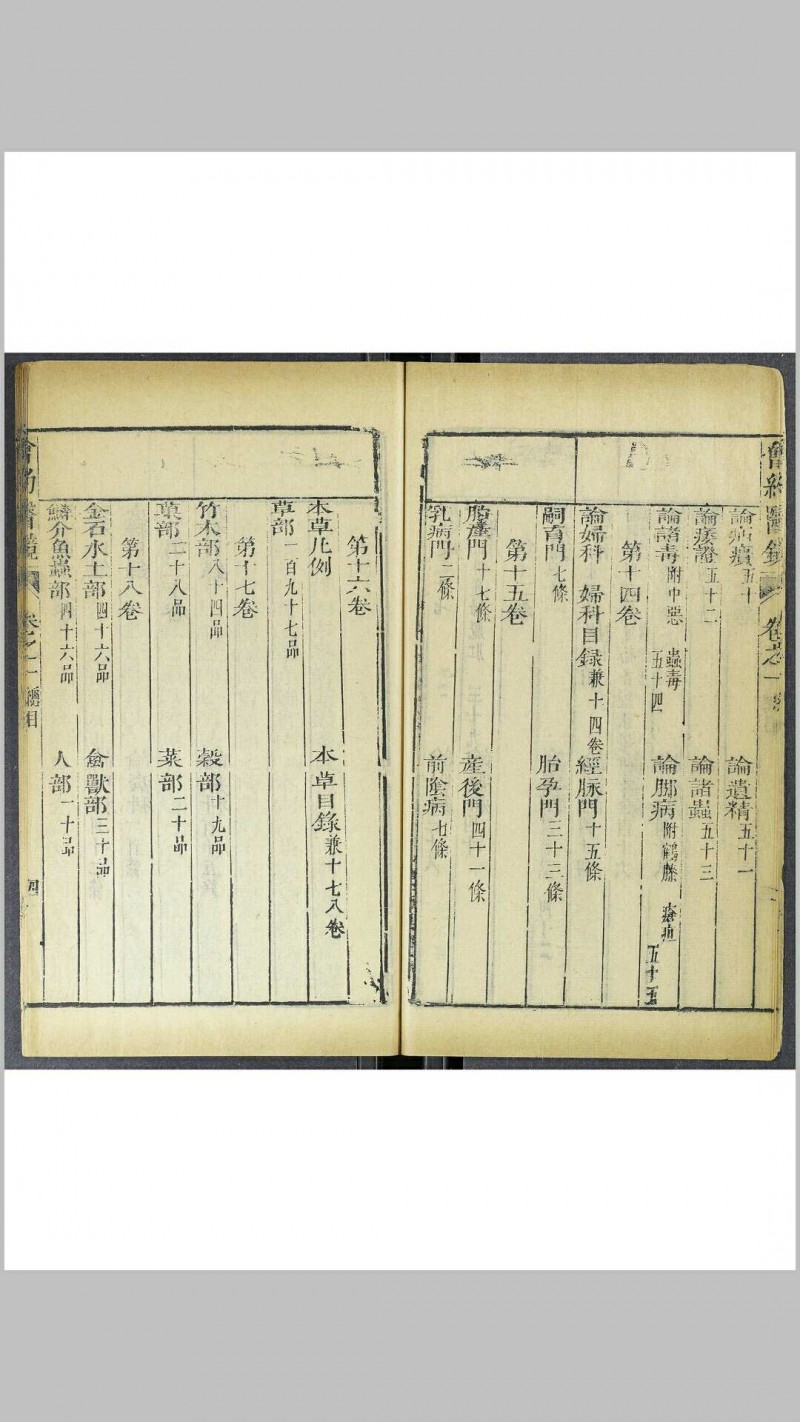 會約醫鏡 卷之一
論疝㿗五十 論遺精五十一
論痿證五十二 論諸蟲五十三
論諸毒附中惡 蟲毒五十四 論脚病附鶴膝 五十五
第十四卷
論婦科 婦科目録兼十四卷 經脉門十五條
嗣育門七條 胎孕門三十三條
第十五卷
產門十七條 產後門四十一條
乳病門二條 前陰病七條
第十六卷
本草凡例 本草目錄兼十七八卷
草部一百九十七品
第十七卷
竹木部八十四品 穀部十九品
菓部二十八品 菜部二十品
第十八卷
金石水土部四十六品 禽獸部三十品
鱗介魚蟲部四十六品 人部一十品
會約醫鏡 卷之一 總目 四